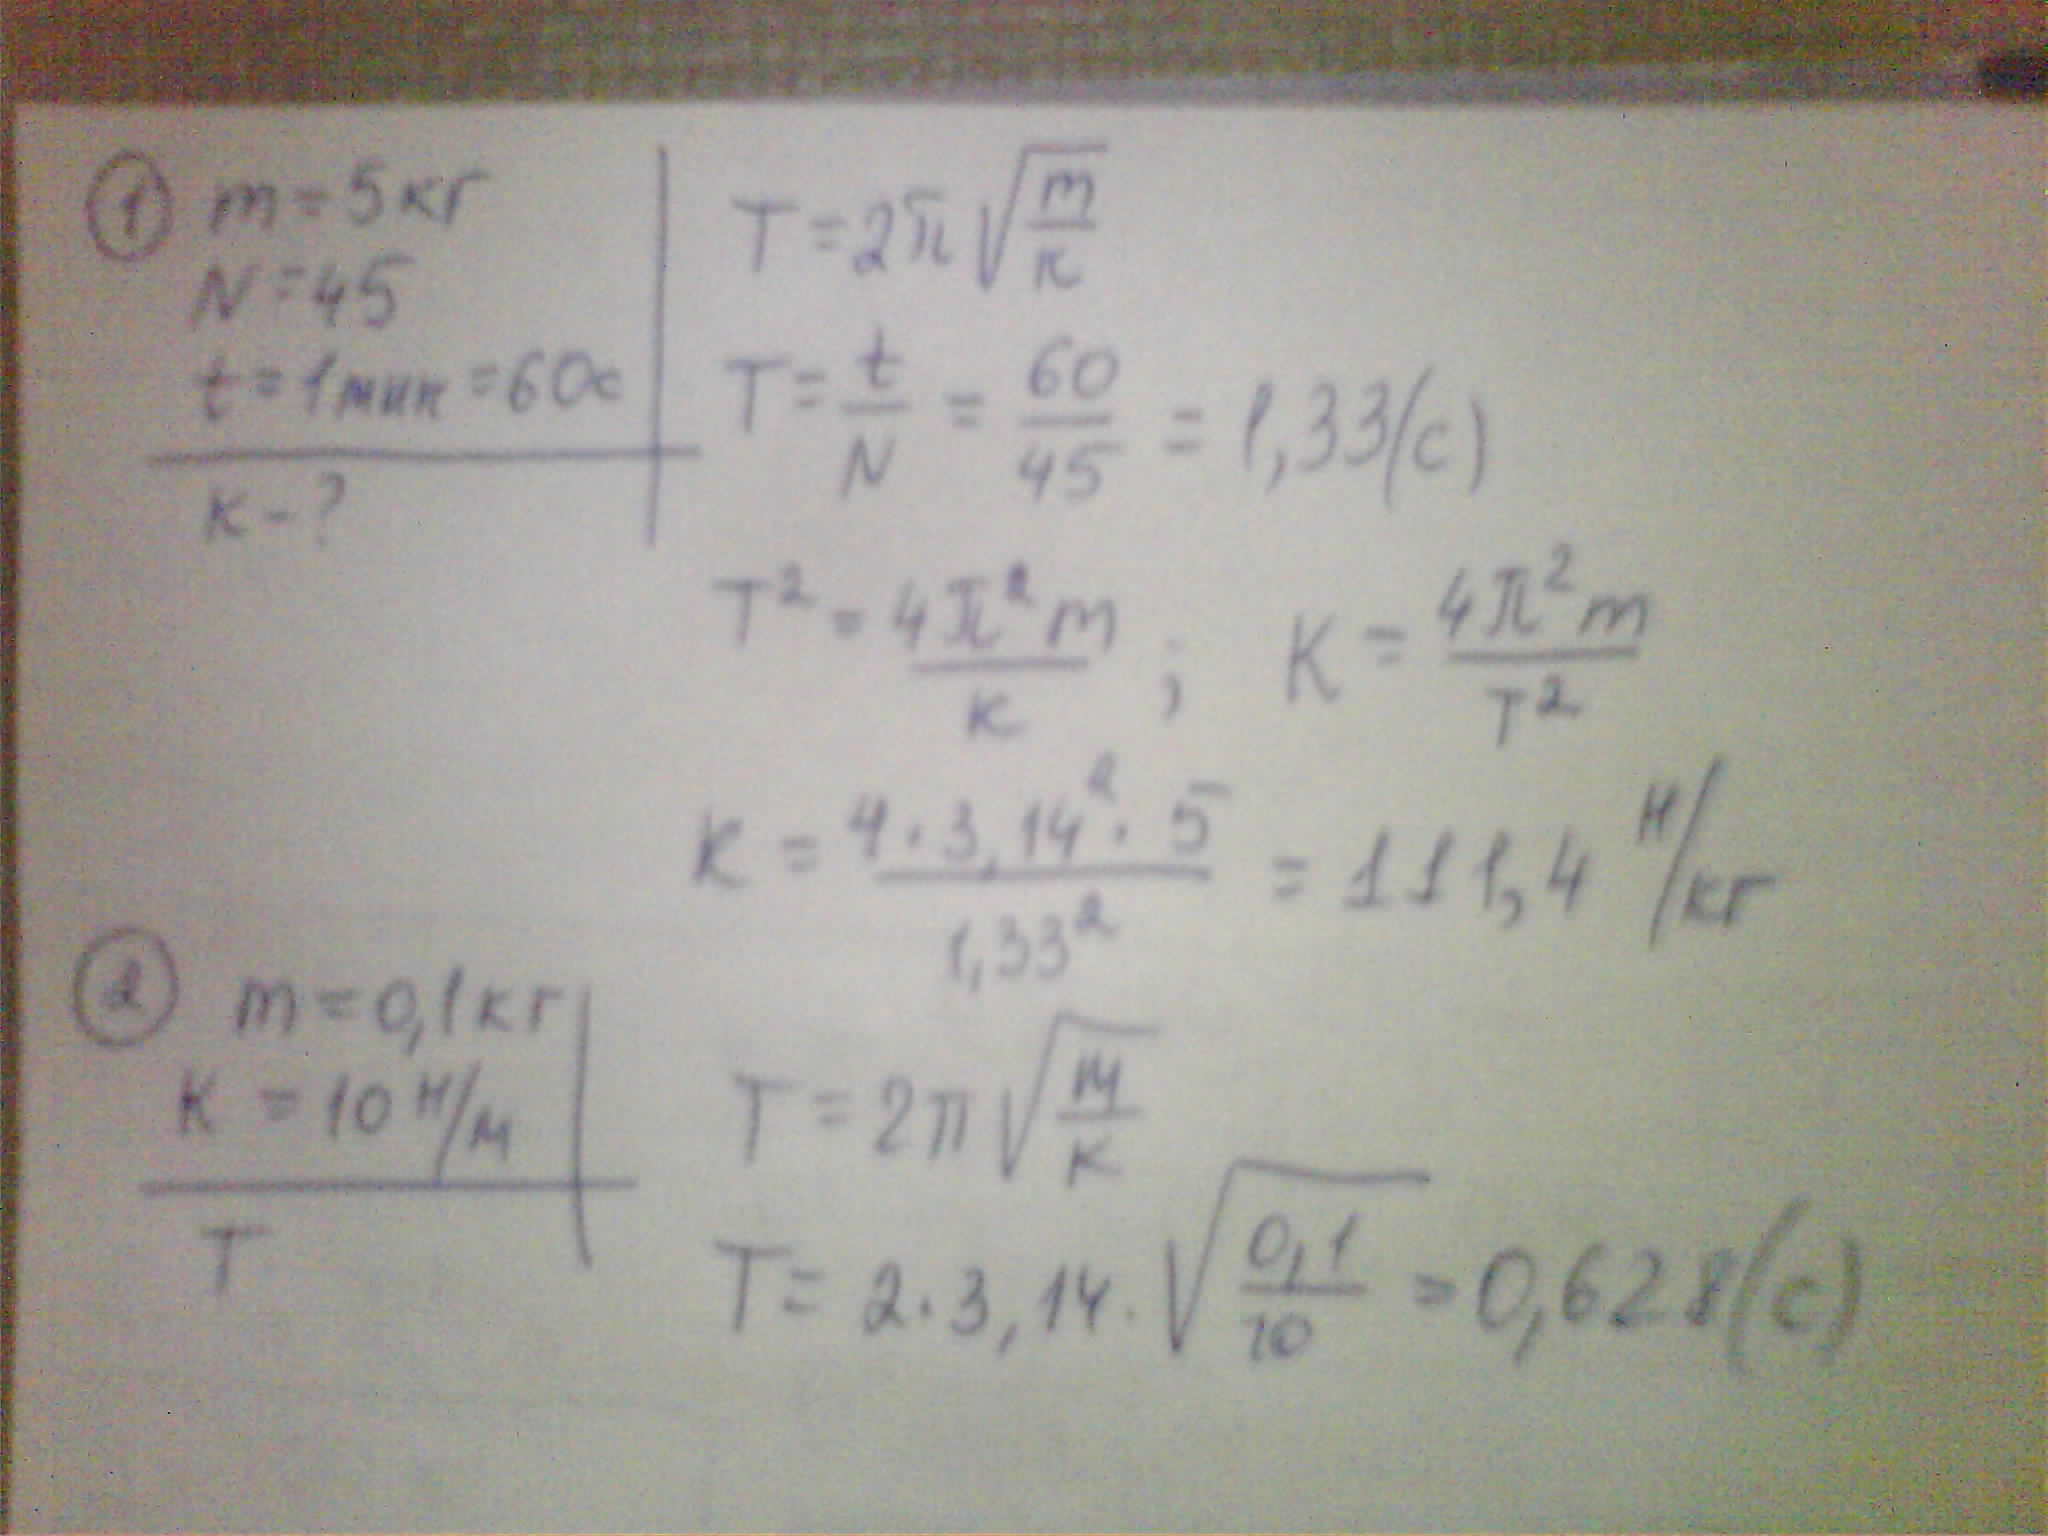 ① m = 5 кг
N = 45
t = 1 мин = 60 с
к - ?
T = 2π√(m/к)
T = t/N = 60/45 = 1,33 (с)
T² = 4π²m/к ; K = 4π²m/T²
K = 4·3,14²·5/1,33² = 111,4 Н/кг
② m = 0,1 кг
K = 10 Н/м
T
T = 2π√(m/к)
T = 2·3,14·√(0,1/10) = 0,628 (с)